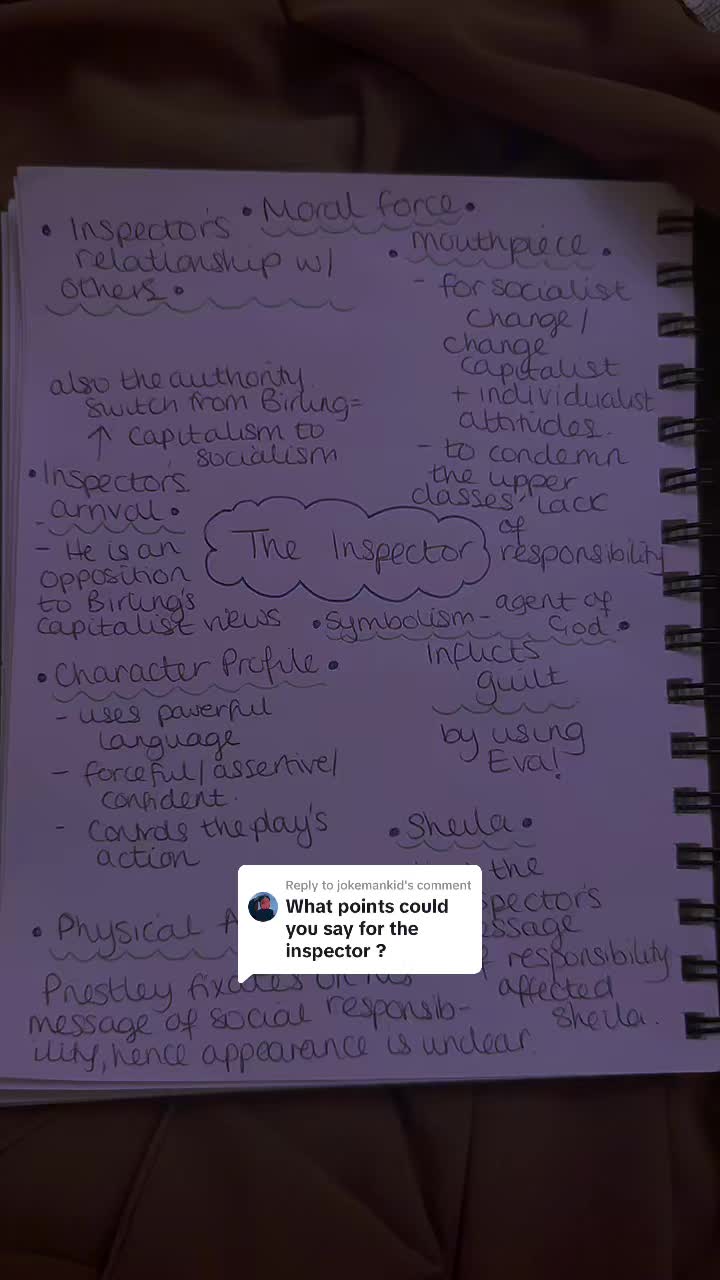 • Moral force •
• Inspector's
relationship w/
others •
also the authority
switch from Birling =
↑ capitalism to
socialism
• mouthpiece •
- for socialist
change /
change
capitalist
+ individualist
attitudes.
- to condemn
the upper
classes' lack
of
responsibility
• Inspector's
arrival •
- He is an
opposition
to Birling's
capitalist views
The Inspector
• Symbolism - agent of
God •
Inflicts
guilt
by using
Eva!
• Character Profile •
- uses powerful
language
- forceful / assertive /
confident.
- controls the play's
action
• Sheila •
the
spector's
essage
responsibility
affected
Sheila.
• Physical A
Prestley fixates on his
message of social responsib-
ility, hence appearance is unclear.
Reply to jokemankid's comment
What points could
you say for the
inspector ?